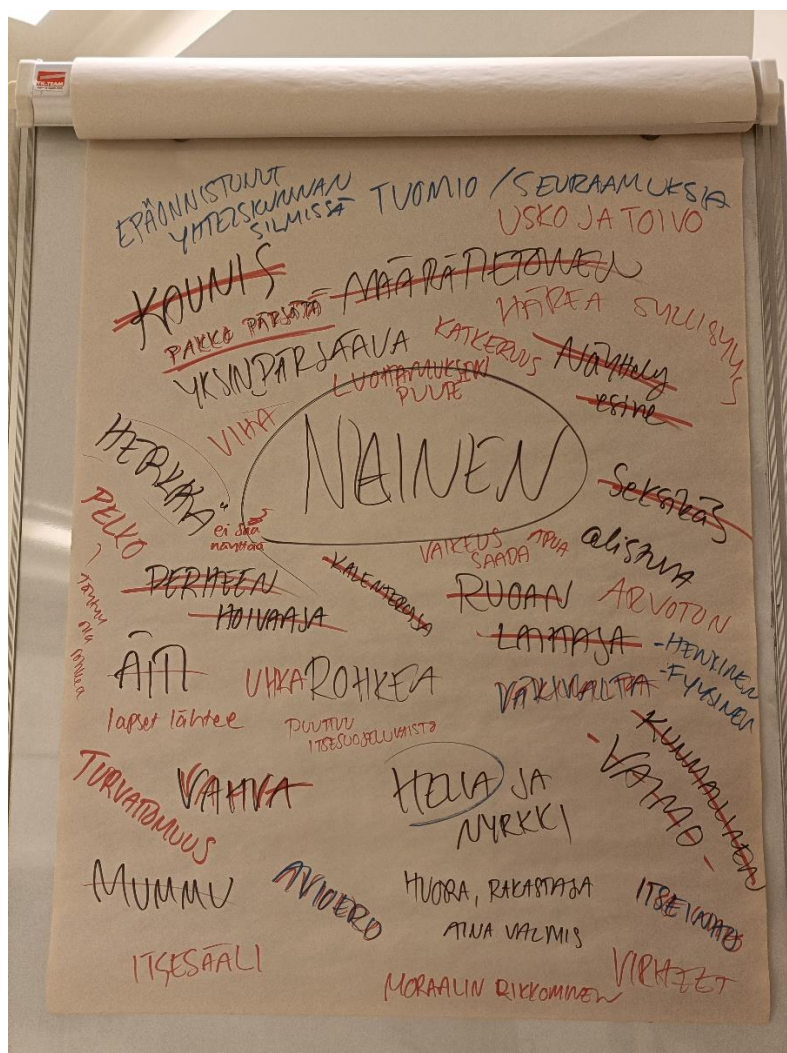 EPÄONNISTUNUT
YHTEISKUNNAN
SILMISSÄ
TUOMIO / SEURAAMUKSIA
USKO JA TOIVO
KAUNIS
MÄÄRÄTIETOINEN
PAKKO PÄRJÄTÄ
HÄPEÄ
SYLLISYYS
YKSINPÄRJÄÄVÄ
KATKERUUS
Näyttely
esine
LUOTTAMUKSEN
PUUTE
VIHA
NAINEN
HERKKÄ
ei saa
näyttää
Seksikäs
PELKO
VAIKEUS
SAADA
APUA
alistuva
PERHEEN
HOIVAAJA
RUOAN
LAITTAJA
ARVOTON
- HENKINEN
- FYYSINEN
ÄITI
lapset lähtee
UHKAROHKEA
VÄKIVALTA
PUUTTUU
ITSESUOJELUVAISTO
KUNNIALLINEN
- VAIMO -
TURVATTOMUUS
VAHVA
HELLA JA
NYRKKI
MUMMU
AVIOERO
HUORA, RAKASTAJA
AINA VALMIS
ITSESÄÄLI
MORAALIN RIKKOMINEN
VIRHEET